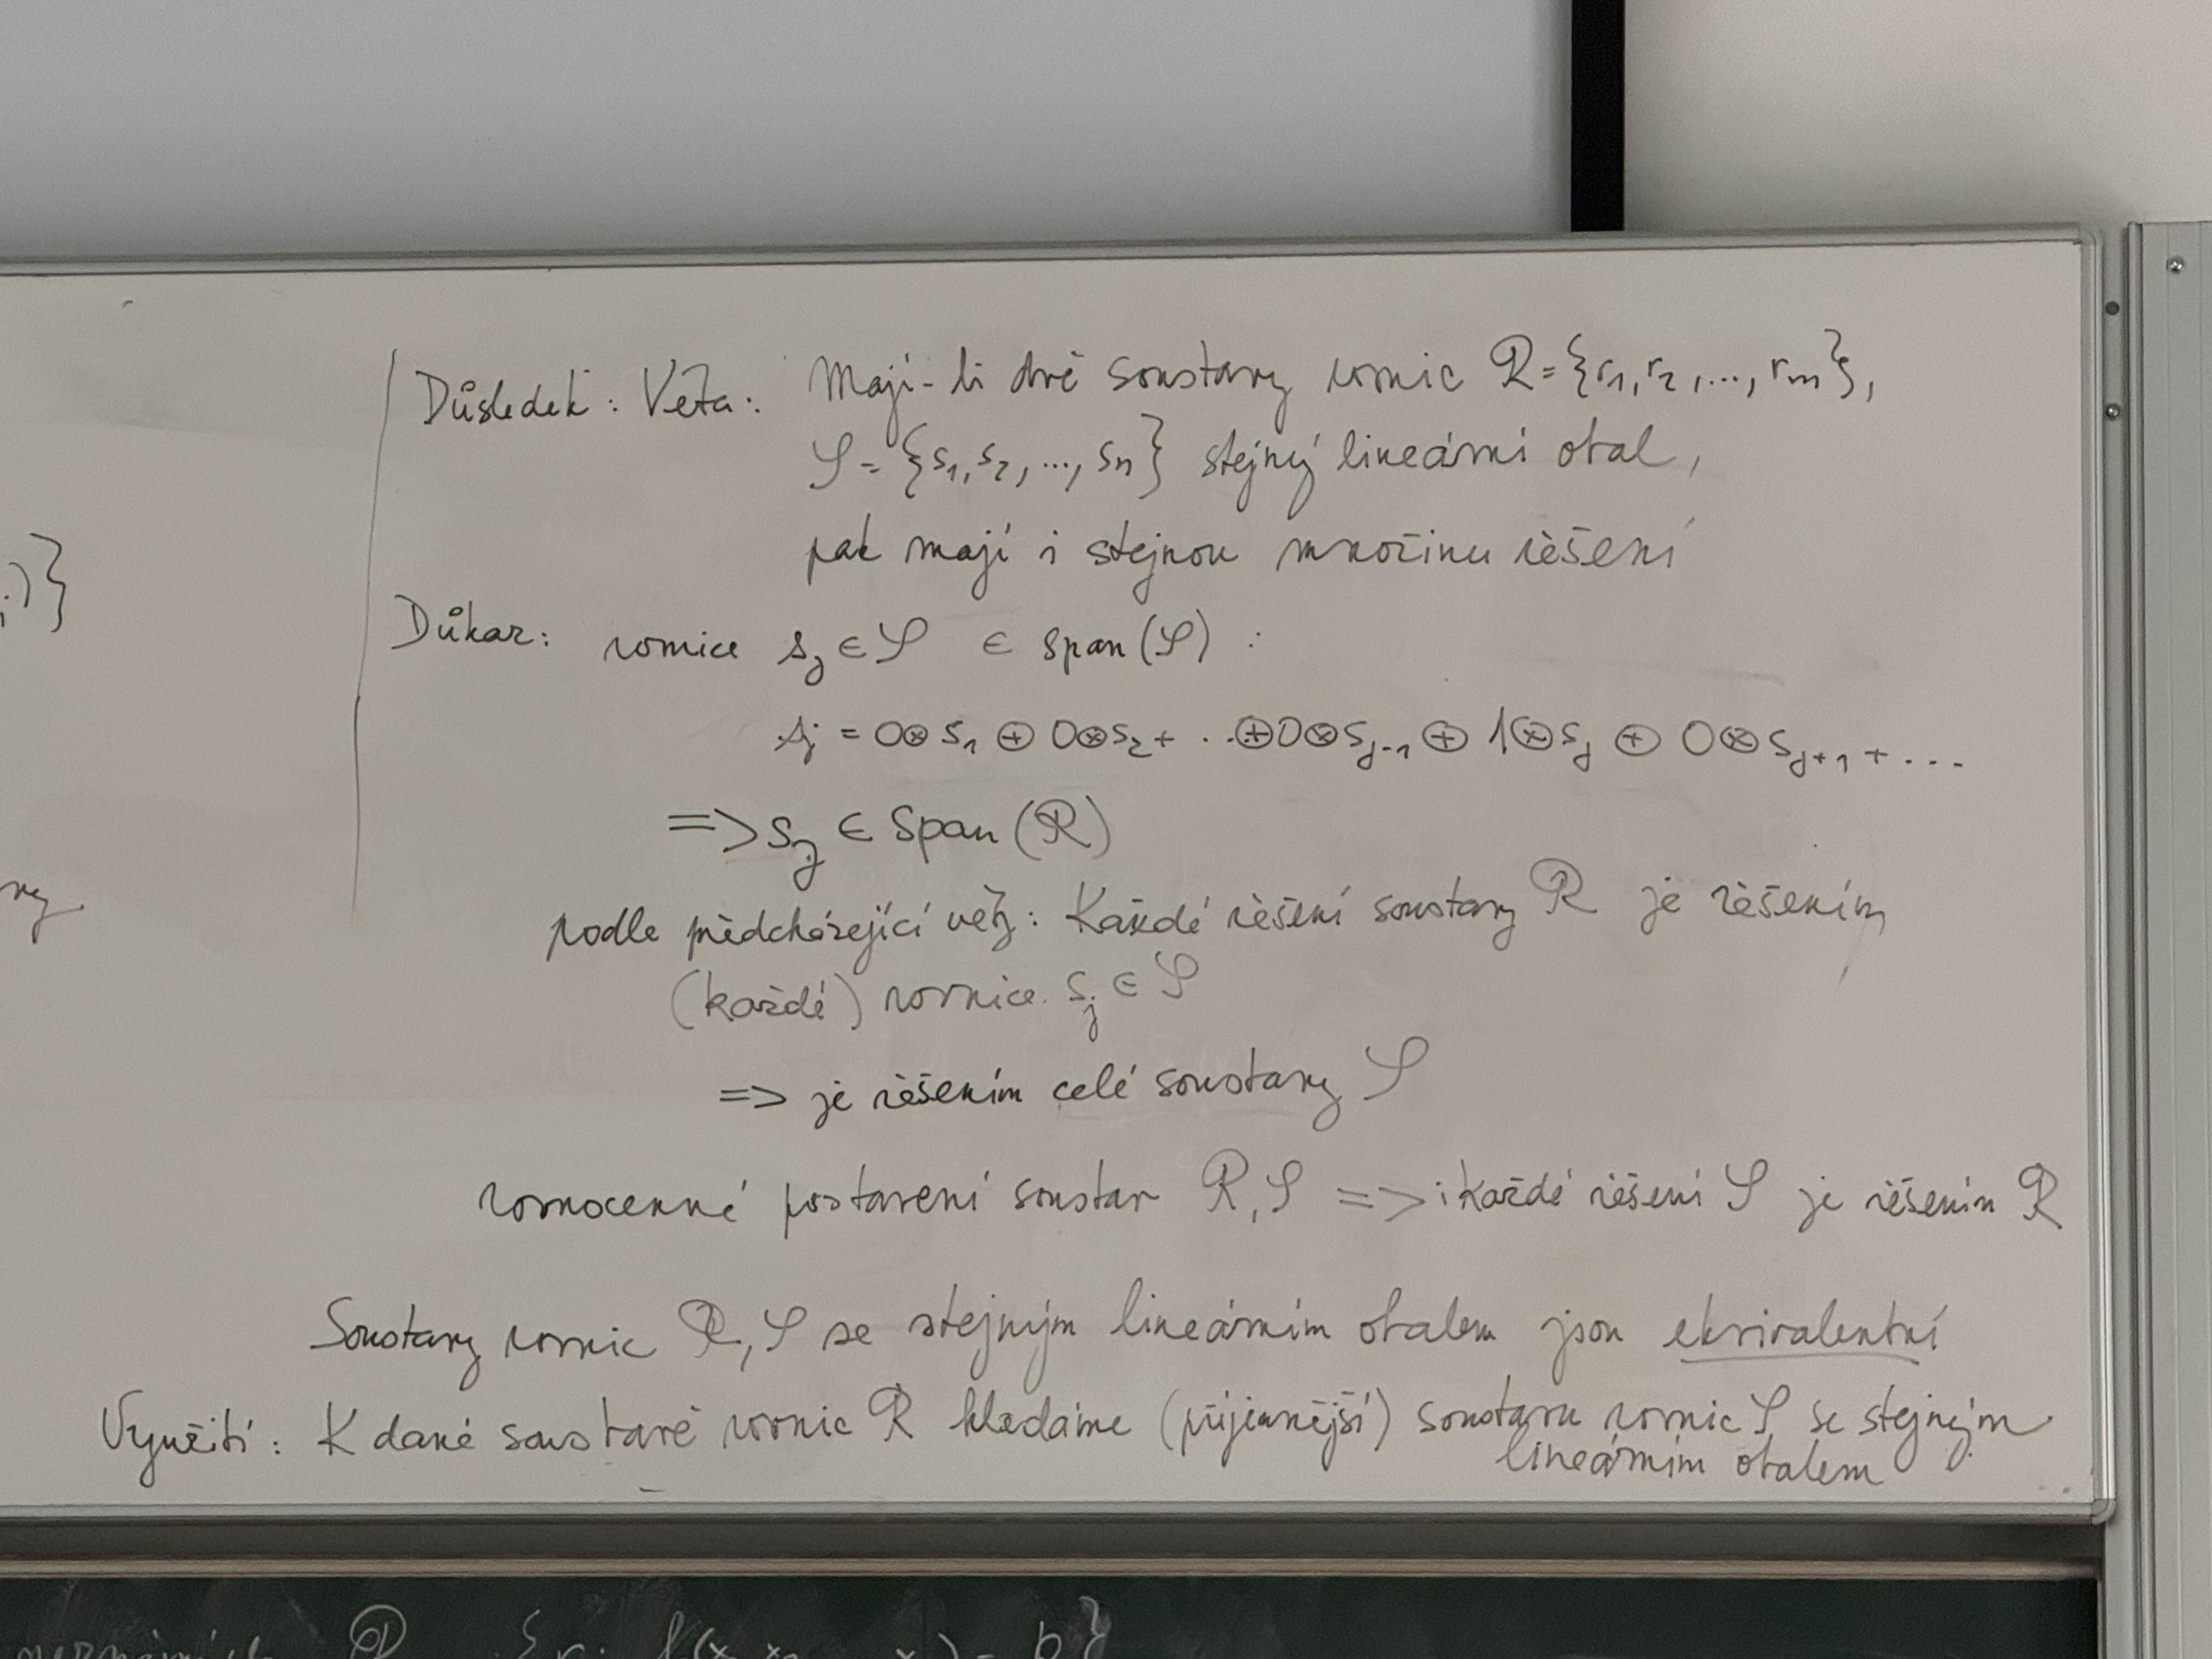 Důsledek: Věta: Mají-li dvě soustavy rovnic R={r₁, r₂, ..., rₘ},
S={s₁, s₂, ..., sₙ} stejný lineární obal,
pak mají i stejnou množinu řešení
Důkaz: rovnice sⱼ ∈ S ∈ span(S) :
sⱼ = 0⊗s₁ ⊕ 0⊗s₂ + ...⊕0⊗sⱼ₋₁ ⊕ 1⊗sⱼ ⊕ 0⊗sⱼ₊₁ + ...
=> sⱼ ∈ span(R)
podle předcházející věty: Každé řešení soustavy R je řešením
(každé) rovnice sⱼ ∈ S
=> je řešením celé soustavy S
rovnocenné postavení soustav R, S => i každé řešení S je řešením R
Soustavy rovnic R, S se stejným lineárním obalem jsou ekvivalentní
Využití: K dané soustavě rovnic R hledáme (příjemnější) soustavu rovnic S se stejným
lineárním obalem